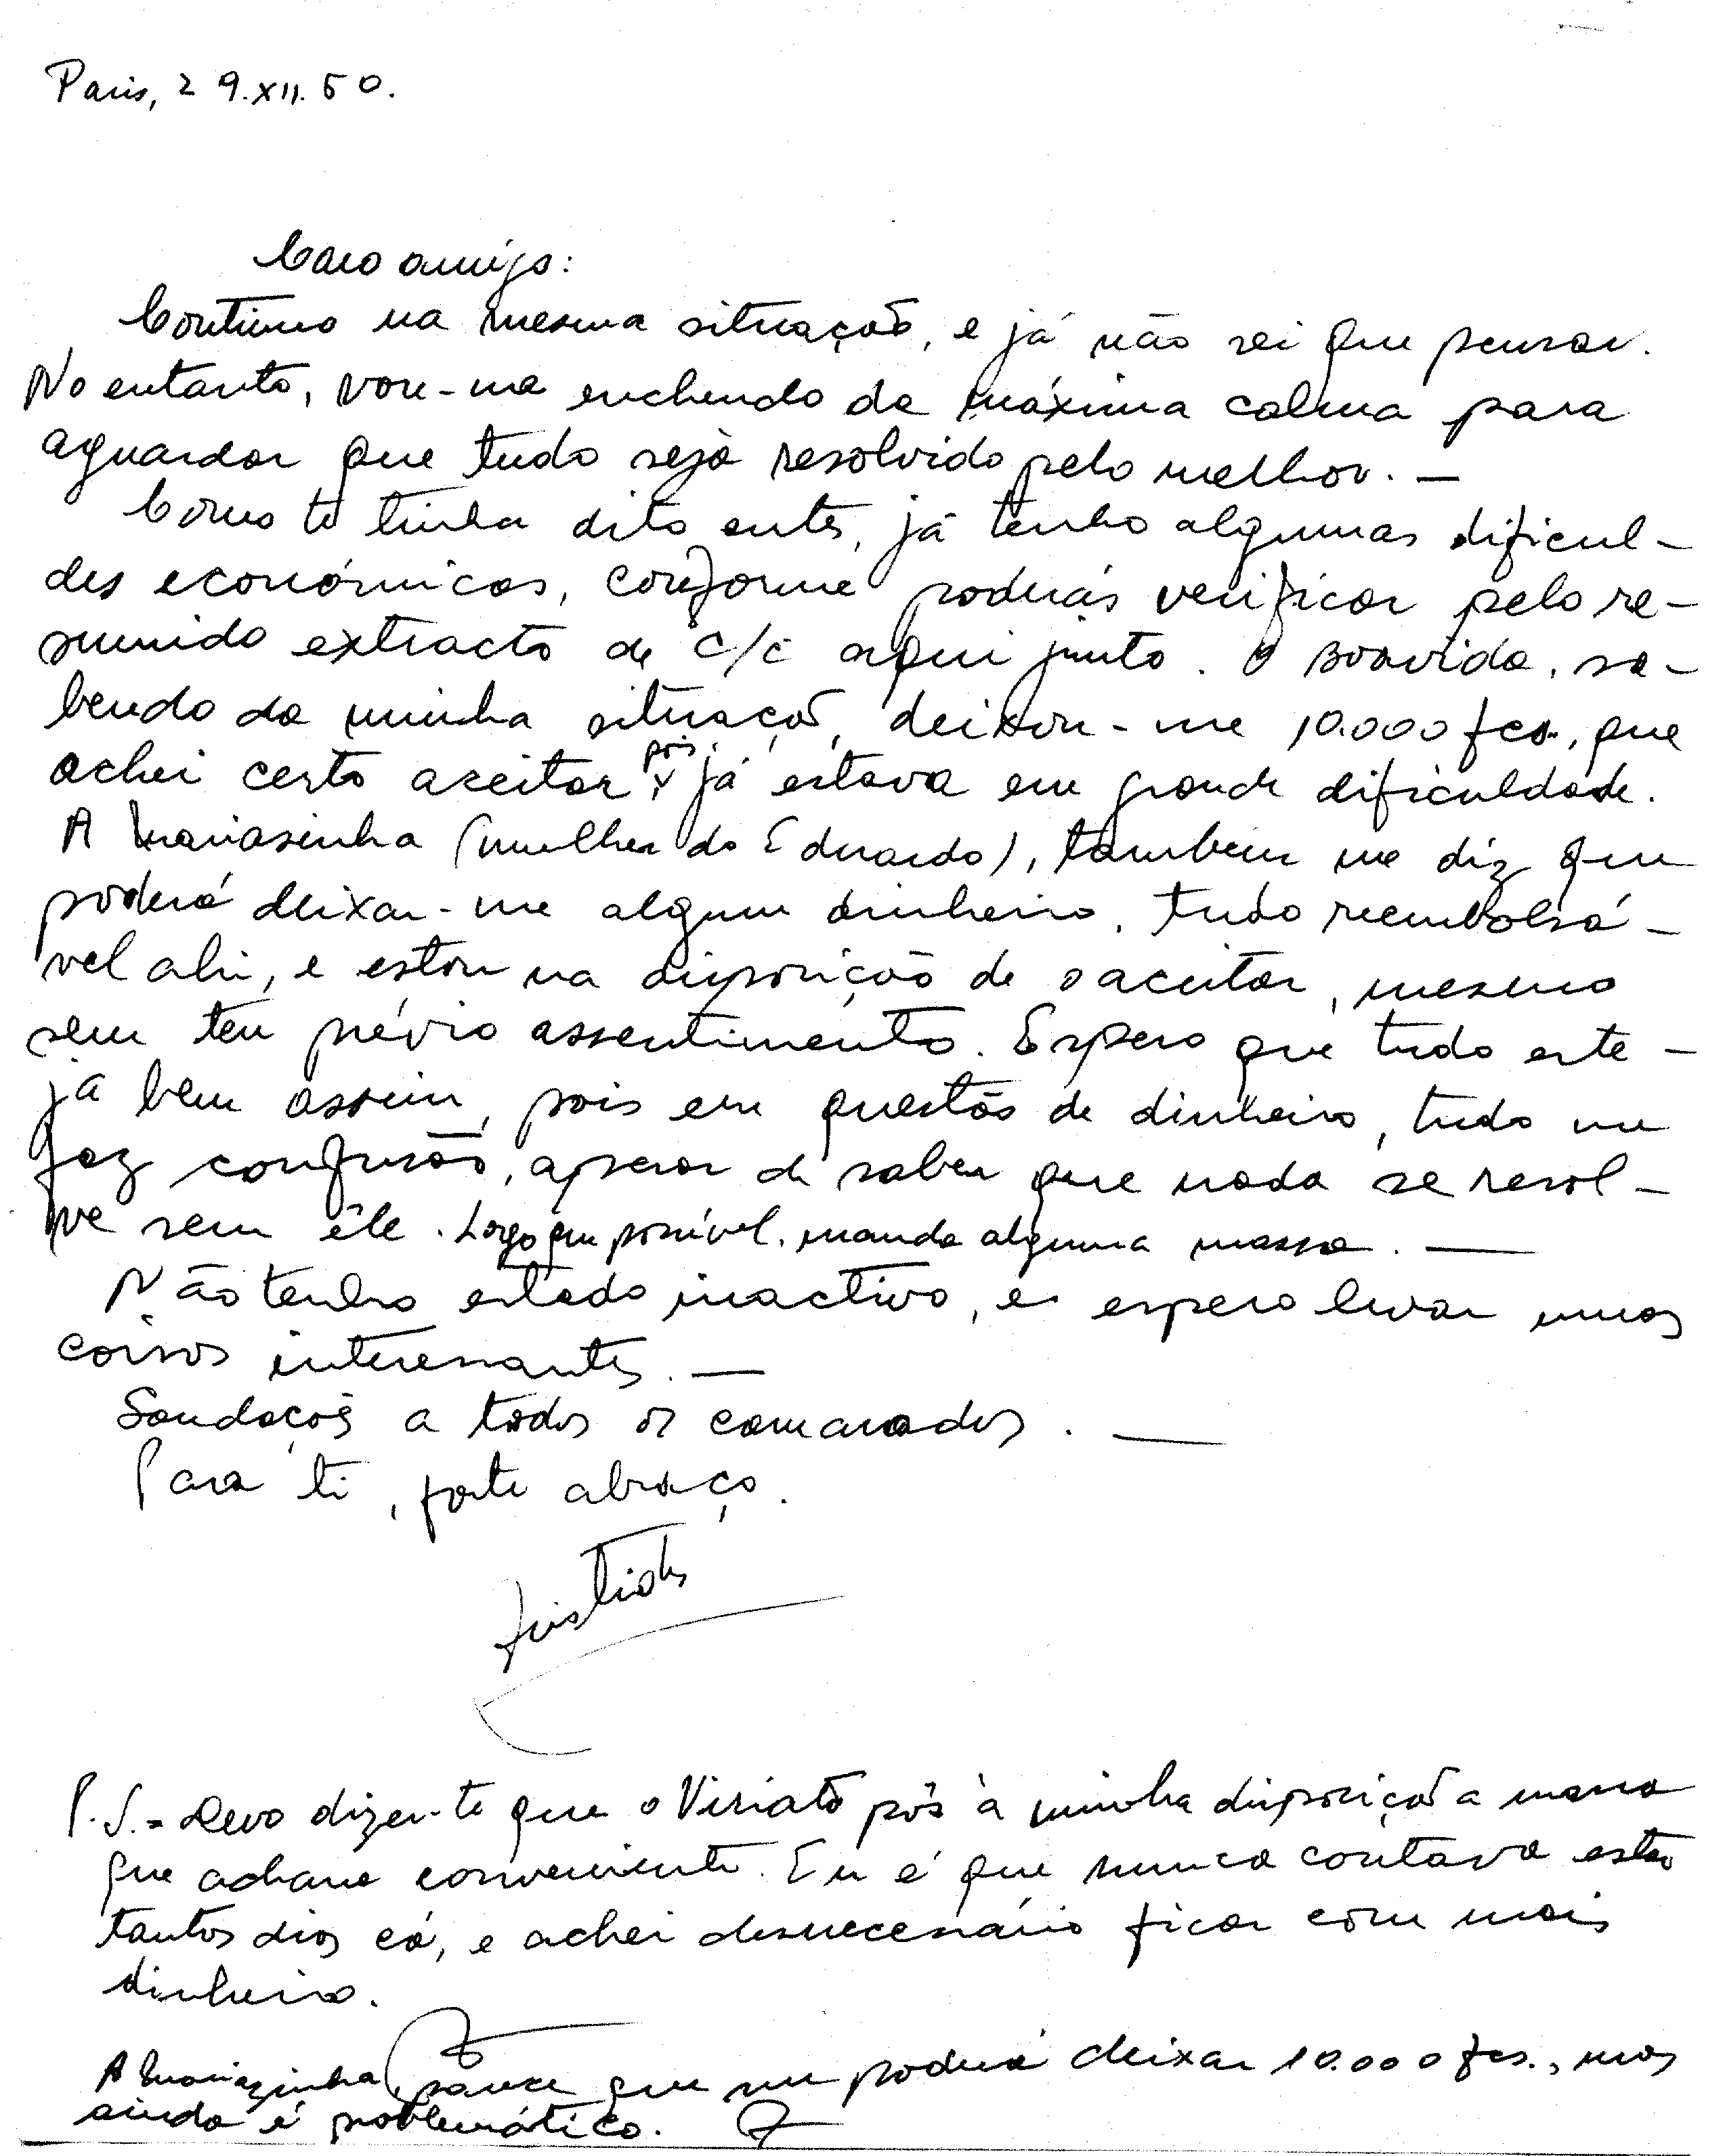 Paris, 29.XII.60.
Caro amigo:
Continuo na mesma situação, e já não sei que pensar.
No entanto, vou-me enchendo da máxima calma para
aguardar que tudo seja resolvido pelo melhor. —
Como te tinha dito antes, já tenho algumas dificul-
des económicas, conforme poderás verificar pelo re-
sumido extracto de c/c aqui junto. O Boavida, sa-
bendo da minha situação, deixou-me 10.000 fcs., que
achei certo aceitar pois já estava em grande dificuldade.
A Mariasinha (mulher do Eduardo), também me diz que
poderá deixar-me algum dinheiro, tudo reembolsá-
vel ahi, e estou na disposição de o aceitar, mesmo
sem teu prévio assentimento. Espero que tudo este-
ja bem assim, pois em questões de dinheiro, tudo me
faz confusão, apesar de saber que nada se resol-
ve sem êle. Logo que possível, manda alguma massa. —
Não tenho estado inactivo, e espero levar umas
coisas interessantes. —
Saudações a todos os camaradas. —
Para ti, forte abraço.
P.S. = Devo dizer-te que o Viriato pôs à minha disposição a massa
que achasse conveniente. Eu é que nunca contava estar
tantos dias cá, e achei desnecessário ficar com mais
dinheiro.
A Mariazinha, parece que me poderá deixar 10.000 fcs., mas
ainda é problemático.